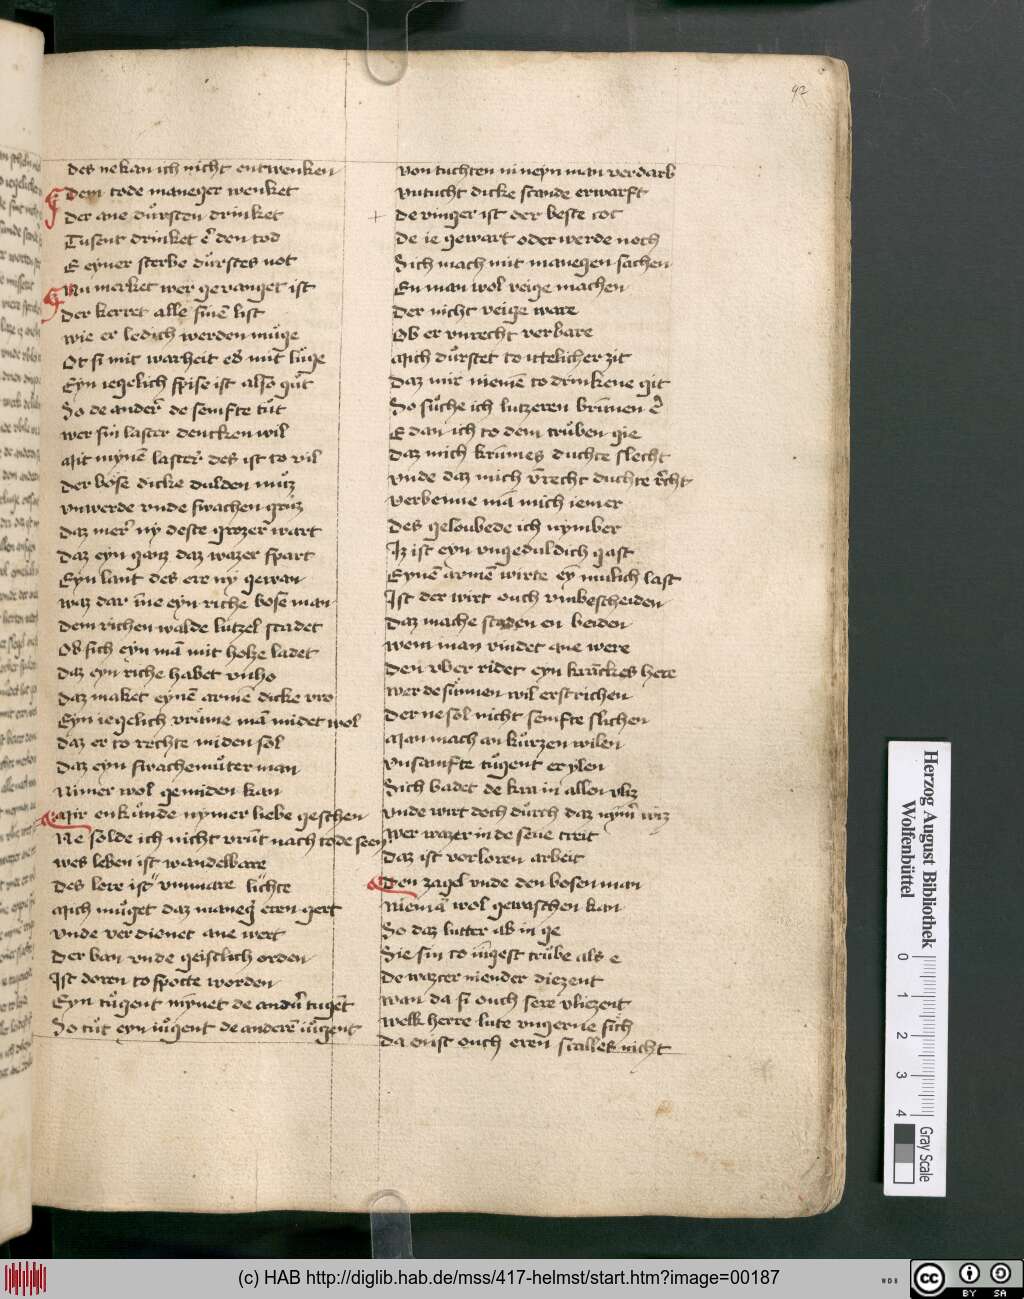 92
des nekan ich nicht entwenken
Dem tode maneger wenket
Der ane důrsten drinket
Tusent drinket er̄ den tod
E eyner sterbe důrstes not
Nu merket wer gevanget ist
Der kerret alle sinē list
wie er ledich werden můge
Ot si mit warheit es mit lůge
Eyn iegelich spise ist also gůt
So de ander̄ de semfte tůt
wer sin laster dencken wil
Mit mynē laster̄ des ist to vil
Der bose dicke dulden můz
vnwerde vnde swachen grůz
daz mer̄ ny deste grozer wart
daz eyn ganz daz wazer spart
Eyn lant des ere ny gewan
waz dar īne eyn riche bose man
Dem richen walde lůtzel scadet
Ob sich eyn mā mit holze ladet
daz eyn riche habet vnho
daz maket eynē armē dicke vro
Eyn iegelich vrůme mā midet wol
daz er to rechte miden sol
Daz eyn swachemůter man
Nimer wol gemiden kan
Mir enkůnde nymer liebe geschen
Ne solde ich nicht vrůt nach tode seen
wes leben ist wandelbare
Des lere ist vnmare lichte
Mich můget daz maneger eren gert
vnde verdienet ane wert
Der ban vnde geistlich orden
Ist doren to spotte worden
Eyn tůgent mynet de ander tugēt
So tůt eyn iůgent de anderē iůgent
von tuchten ni neyn man verdarb
vntucht dicke scande erwarft
De vinger ist der beste tot
De ie gewart oder werde noch
Sich mach mit manegen sachen
En man wol veige machen
Der nicht veige ware
Ob er vnrecht verbare
Mich důrstet to ittelicher zit
Daz mir niemē to drinkene git
So sůche ich lutzeren brūnen er̄
E dan ich to dem trůben gie
Daz mich krūmes duchte slecht
vnde daz mich v̄recht duchte r̄cht
verbenne mā mich iemer
Des geloubede ich nymber
Iz ist eyn vngeduldich gast
Eynē armē wirte ey mulich last
Ist der wirt ouch vmbescheiden
Daz mache scaden en beiden
wem man vindet ane were
Den vber ridet eyn kranckes here
wer de sūnnen wil erstrichen
Der ne sol nicht semfte slichen
Man mach an kůrzen wilen
vnsamfte tůgent erylen
Sich badet de kra in allen vliz
vnde wirt doch důrch daz nym̄ wiz
wer wazer in de seue treit
Daz ist verloren arbeit
Den zagel vnde den bosen man
Niemā wol gewaschen kan
So daz lutter ab in ge
Sie sin to iūgest trůbe als e
De wazer niender diezent
wan da si ouch sere vliezent
welk herre lute vngerne sich
Da enist ouch eren scalles nicht
Herzog August Bibliothek
Wolfenbüttel
0 1 2 3 4
Gray Scale
(c) HAB http://diglib.hab.de/mss/417-helmst/start.htm?image=00187
WDB
cc BY SA